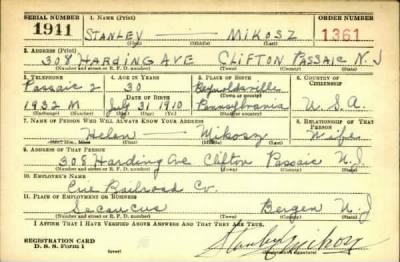 SERIAL NUMBER 1. NAME (Print) ORDER NUMBER
1941 STANLEY MIKOSZ 1361
(First) (Middle) (Last)
2. ADDRESS (Print)
308 HARDING AVE CLIFTON PASSAIC N.J
(Number and street or R. F. D. number) (Town) (County) (State)
3. TELEPHONE 4. AGE IN YEARS 5. PLACE OF BIRTH 6. COUNTRY OF CITIZENSHIP
Passaic 2 30 Reynoldsville
DATE OF BIRTH (Town or county)
1932 M July 31 1910 Pennsylvania U.S.A.
(Exchange) (Number) (Mo.) (Day) (Yr.) (State or country)
7. NAME OF PERSON WHO WILL ALWAYS KNOW YOUR ADDRESS 8. RELATIONSHIP OF THAT PERSON
Helen Mikosz Wife
(Mr., Mrs., Miss) (First) (Middle) (Last)
9. ADDRESS OF THAT PERSON
308 Harding Ave Clifton Passaic N.J.
(Number and street or R. F. D. number) (Town) (County) (State)
10. EMPLOYER'S NAME
Erie Railroad Co.
11. PLACE OF EMPLOYMENT OR BUSINESS
Secaucus Bergen N.J
(Number and street or R. F. D. number) (Town) (County) (State)
I AFFIRM THAT I HAVE VERIFIED ABOVE ANSWERS AND THAT THEY ARE TRUE.
REGISTRATION CARD
D. S. S. Form 1 Stanley Mikosz
(Registrant's signature)